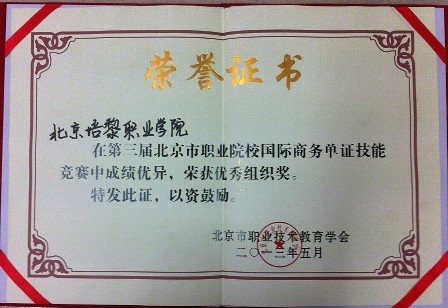 荣誉证书
北京培黎职业学院
在第三届北京市职业院校国际商务单证技能
竞赛中成绩优异，荣获优秀组织奖。
特发此证，以资鼓励。
北京市职业技术教育学会
二〇一二年五月